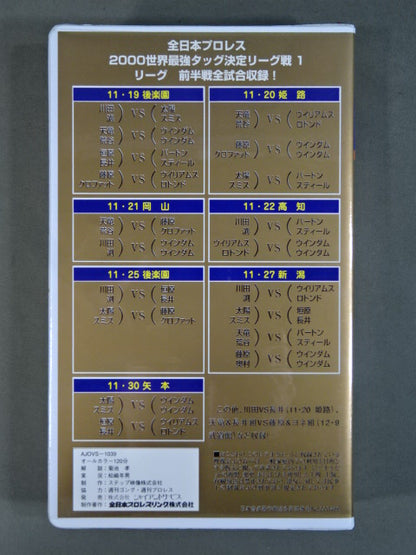 全日本プロレス
2000世界最強タッグ決定リーグ戦 1
リーグ 前半戦全試合収録！
11・19 後楽園
川田 太陽
鴻 VS スミス
天竜 ウインダム
荒谷 VS ウインダム
垣原 バートン
長井 VS スティール
藤原 ウイリアムス
クロファット VS ロトンド
11・20 姫路
天竜 ウイリアムス
荒谷 VS ロトンド
藤原 ウインダム
クロファット VS ウインダム
太陽 バートン
スミス VS スティール
11・21 岡山
天竜 藤原
荒谷 VS クロファット
川田 ウインダム
鴻 VS ウインダム
11・22 高知
川田 バートン
鴻 VS スティール
ウイリアムス ウインダム
ロトンド VS ウインダム
11・25 後楽園
川田 垣原
鴻 VS 長井
太陽 藤原
スミス VS クロファット
11・27 新潟
川田 ウイリアムス
鴻 VS ロトンド
太陽 垣原
スミス VS 長井
天竜 バートン
荒谷 VS スティール
藤原 ウインダム
奥村 VS ウインダム
11・30 矢本
太陽 ウインダム
スミス VS ウインダム
垣原 ウイリアムス
長井 VS ロトンド
この他、川田VS長井(11・20 姫路)、
天竜&長井組VS藤原&
AJOVS-1039
オールカラー120分
解 説：菊池 孝
実 況：
制 作：ステップ映像株式会社
協 力：週刊ゴング・週刊プロレス
発 売：株式会社 ジャイアントサービス
制作著作：全日本プロレスリング株式会社